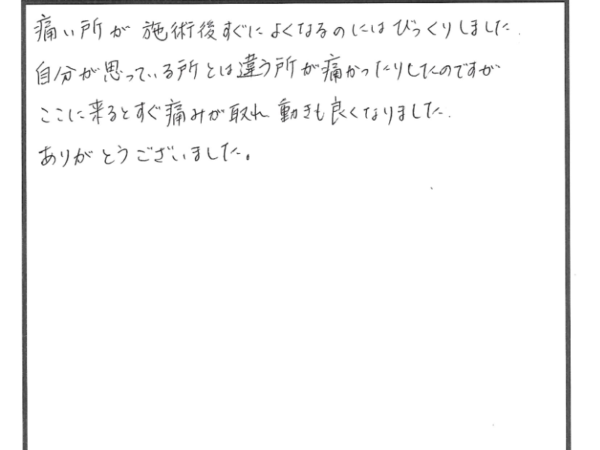 痛い所が施術後すぐによくなるのにはびっくりしました.
自分が思っている所とは違う所が痛かったりしたのですが
ここに来るとすぐ痛みが取れ動きも良くなりました.
ありがとうございました。